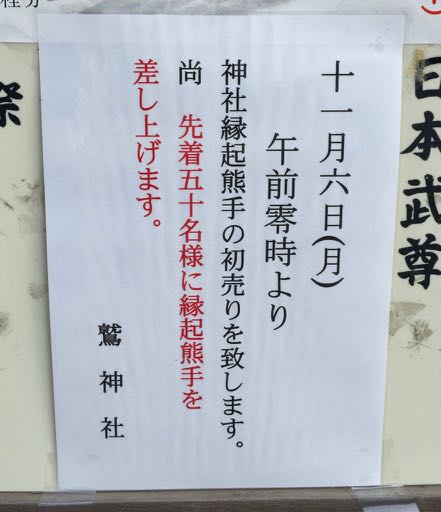 十一月六日(月)
午前零時より
神社縁起熊手の初売りを致します。
尚 先着五十名様に縁起熊手を
差し上げます。
鷲神社
日本武尊
祭